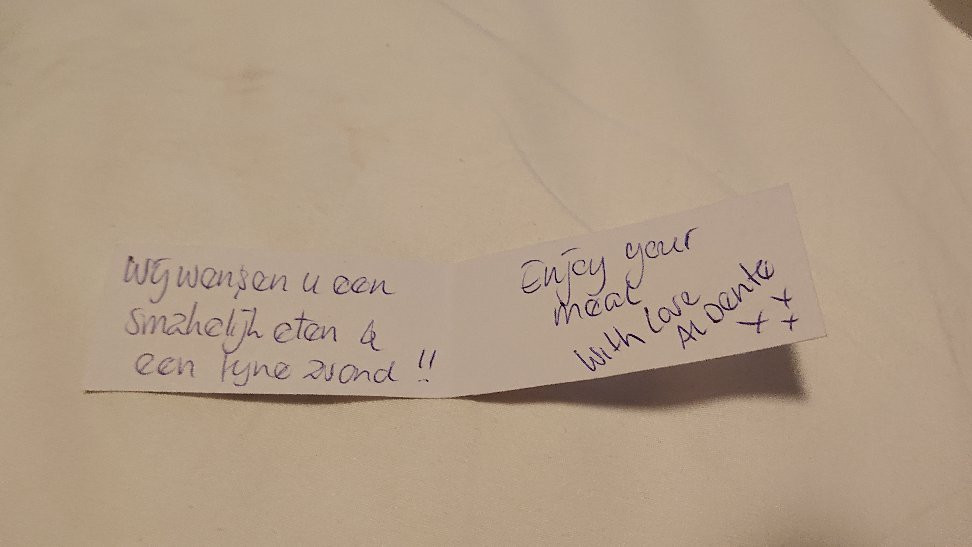 Wij wensen u een
smakelijk eten &
een fijne avond !!
Enjoy your
meal
With love
Al Dente
x x
x